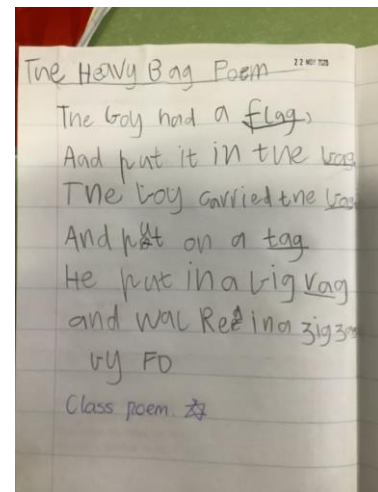 The Heavy Bag Poem
22 NOV
The boy had a flag,
And put it in the bag
The boy carried the bag
And put on a tag
He put in a big rag
and walked in a zig zag
by FD
Class poem